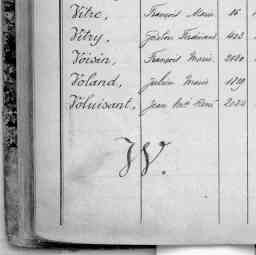 Vitre, François Marie 16
Vitry, Gaston Ferdinand 423
Voisin, François Marie
Voland, Julien Marie 1829
Voluisant, Jean
W.